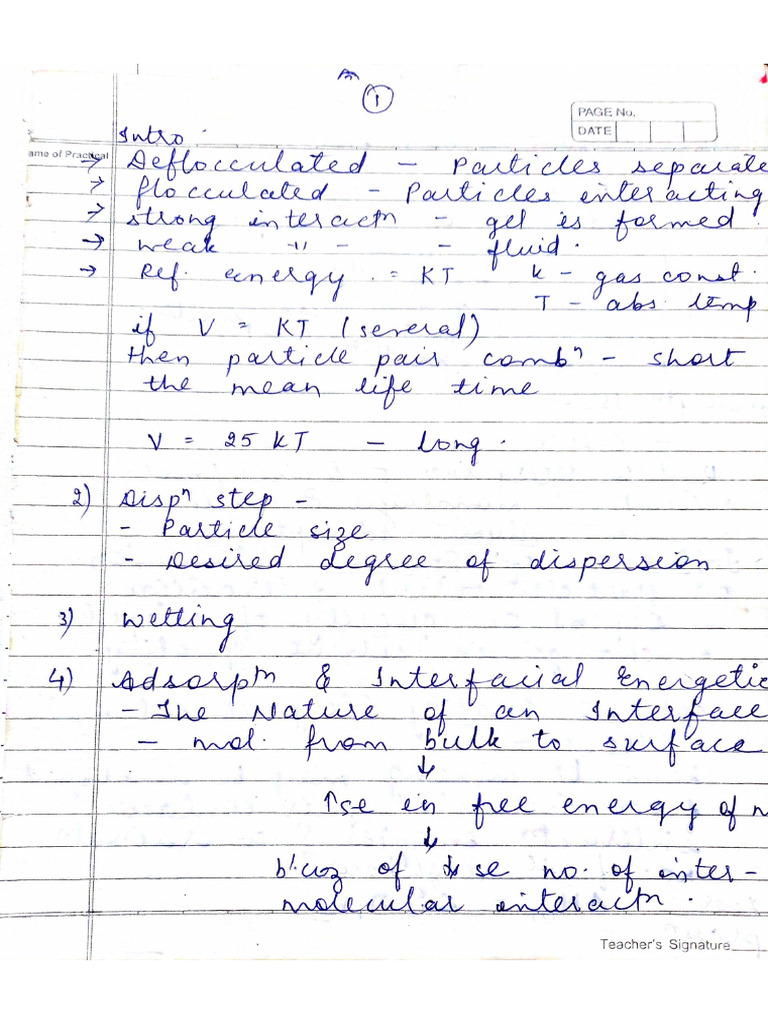 1
PAGE No.
DATE
Intro.
ame of Practical
→ Deflocculated - Particles separate
→ flocculated - Particles interacting
→ strong interactn - gel is formed.
→ weak " - - fluid.
→ Ref. energy = KT K - gas const.
T - abs. temp
if V = KT (several)
then particle pair combⁿ - short
the mean life time
V = 25 KT - long.
2) Dispⁿ step -
- Particle size
- Desired degree of dispersion
3) Wetting
4) Adsorpᵗⁿ & Interfacial Energetic
- The Nature of an Interface
- mol. from bulk to surface
↓
↑se in free energy of
↓
b'coz of ↓se no. of inter-
molecular interactn.
Teacher's Signature